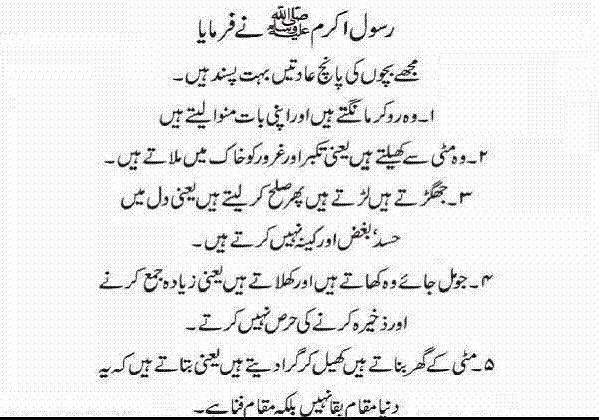 رسول اکرم ﷺ نے فرمایا
مجھے بچوں کی پانچ عادتیں بہت پسند ہیں۔
۱۔وہ رو کر مانگتے ہیں اور اپنی بات منوا لیتے ہیں
۲۔وہ مٹی سے کھیلتے ہیں یعنی تکبر اور غرور کو خاک میں ملاتے ہیں۔
۳۔جھگڑتے ہیں لڑتے ہیں پھر صلح کر لیتے ہیں یعنی دل میں
حسد‘ بغض اور کینہ نہیں کرتے ہیں۔
۴۔جو مل جائے وہ کھاتے ہیں اور کھلاتے ہیں یعنی زیادہ جمع کرنے
اور ذخیرہ کرنے کی حرص نہیں کرتے۔
۵۔مٹی کے گھر بناتے ہیں کھیل کر گرا دیتے ہیں یعنی بتاتے ہیں کہ یہ
دنیا مقام بقا نہیں بلکہ مقام فنا ہے۔